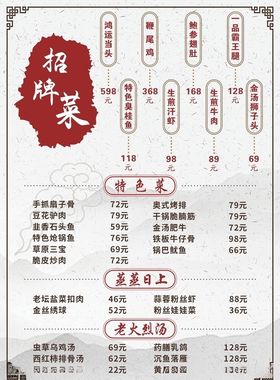 招牌菜
鸿运当头
598元
鞭尾鸡
368元
鲍参翅肚
168元
一品霸王腿
128元
特色臭桂鱼
118元
生煎汗虾
98元
生煎牛肉
89元
金汤狮子头
69元
特色菜
手抓扇子骨 72元
豆花驴肉 79元
韭香石头鱼 79元
特色炝锅鱼 76元
草原三宝 69元
脆皮炒肉 72元
奥式烤排 79元
干锅脆腩筋 79元
金汤肥牛 72元
铁板牛仔骨 98元
锅巴鱿鱼 66元
蒸蒸日上
老坛盐菜扣肉 46元
金丝绣球 52元
蒜蓉粉丝虾 88元
粉丝娃娃菜 36元
老火烈汤
虫草乌鸡汤 69元
西红柿排骨汤 62元
22元
药膳乳鸽 128元
沉鱼落雁 128元
66元